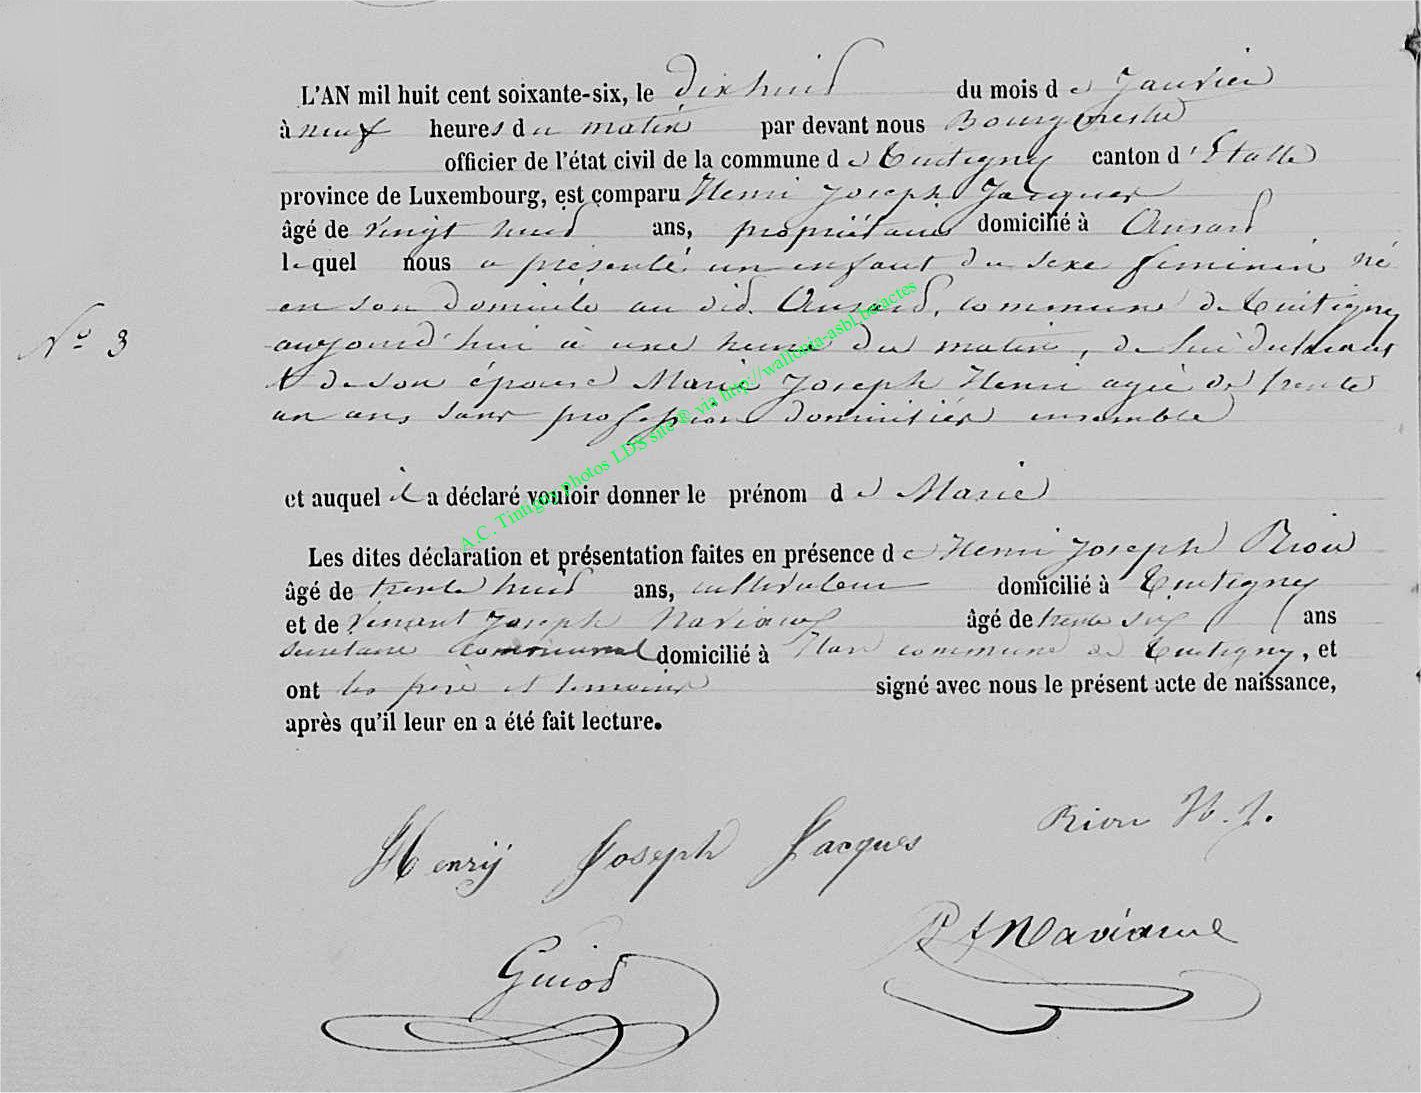 L'AN mil huit cent soixante-six, le dix huit du mois de Janvier
à neuf heures du matin par devant nous Bourgmestre
officier de l'état civil de la commune de Tintigny canton d'Etalle
province de Luxembourg, est comparu Henri Joseph Jacques
âgé de vingt huit ans, propriétaire domicilié à Ansart
lequel nous a présenté un enfant du sexe feminin né
en son domicile au dit Ansart, commune de Tintigny
N° 3
aujourd'hui à une heure du matin, de lui déclarant
& de son épouse Marie Joseph Henri agée de trente
un ans, sans profession domiciliés ensemble
et auquel il a déclaré vouloir donner le prénom de Marie
Les dites déclaration et présentation faites en présence de Henri Joseph Rion
âgé de trente huit ans, cultivateur domicilié à Tintigny
et de Joseph Naviaux âgé de trente six ans
secretaire communal domicilié à commune de Tintigny, et
ont les père et temoins signé avec nous le présent acte de naissance,
après qu'il leur en a été fait lecture.
Henry Joseph Jacques Rion H. J.
Naviaux
Guiot
A.C. Tintigny Photos LDS site ® via http://wallonia-asbl.be/actes